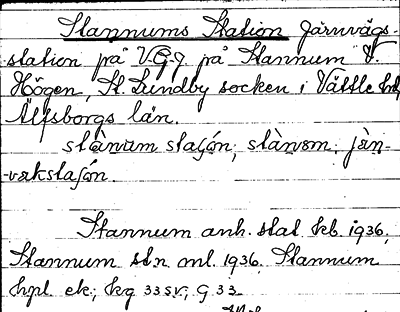 Stannums Station Järnvägs-
station på V.G.J. på Stannum V.
Högen, St. Lundby socken i Vättle hd,
Älfsborgs län.
stànum stasjón; stànom; jàrn-
-vakstasjón.
Stannum anh. stat. kb. 1936,
Stannum stn ml. 1936. Stannum
hpl. ek.; kg 33 SV, G 33